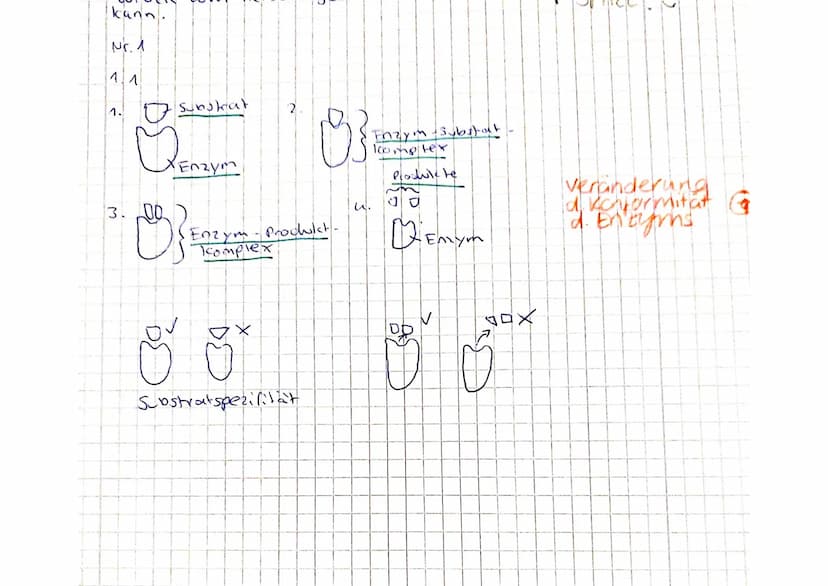 kann.
Nr. 1
1.1
1. Substrat
Enzym
2
Enzym-Substrat-
komplex
3.
Enzym-Produkt-
komplex
Produkte
4.
Enzym
Veränderung
d. Konformität
d. Enzyms
Substratspezifität